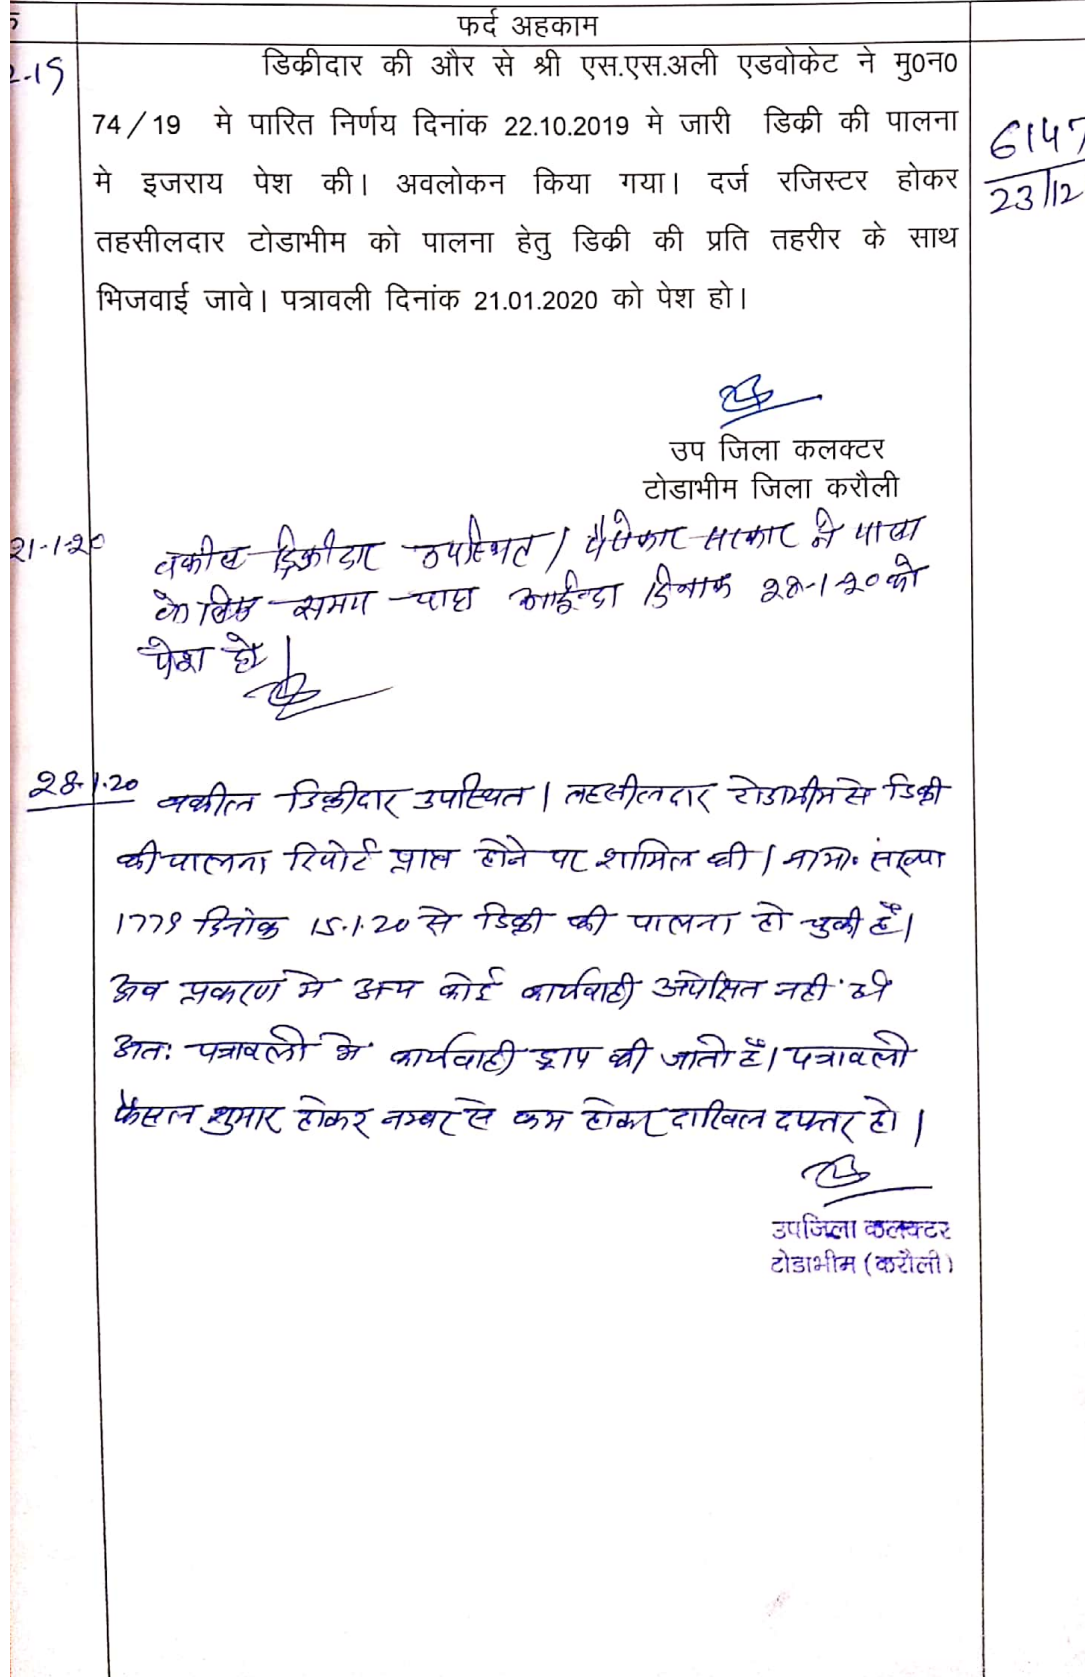 फर्द अहकाम
2-19
डिक्रीदार की और से श्री एस.एस.अली एडवोकेट ने मु0न0
74/19 मे पारित निर्णय दिनांक 22.10.2019 मे जारी डिक्री की पालना
मे इजराय पेश की। अवलोकन किया गया। दर्ज रजिस्टर होकर
तहसीलदार टोडाभीम को पालना हेतु डिक्री की प्रति तहरीर के साथ
भिजवाई जावे। पत्रावली दिनांक 21.01.2020 को पेश हो।
6147
23/12
उप जिला कलक्टर
टोडाभीम जिला करौली
21-1-20
वकील डिक्रीदार उपस्थित। पैरोकार सरकार ने पालना
के लिए समय चाहा आईन्दा दिनांक 28-1-20 को
पेश हो।
28.1.20
वकील डिक्रीदार उपस्थित। तहसीलदार टोडाभीम से डिक्री
की पालना रिपोर्ट प्राप्त होने पर शामिल की। नामा. संख्या
1779 दिनांक 15.1.20 से डिक्री की पालना हो चुकी है।
अब प्रकरण मे अन्य कोई कार्यवाही अपेक्षित नहीं है
अतः पत्रावली में कार्यवाही ड्राप की जाती है। पत्रावली
फैसल शुमार होकर नम्बर से कम होकर दाखिल दफ्तर हो।
उपजिला कलक्टर
टोडाभीम (करौली)